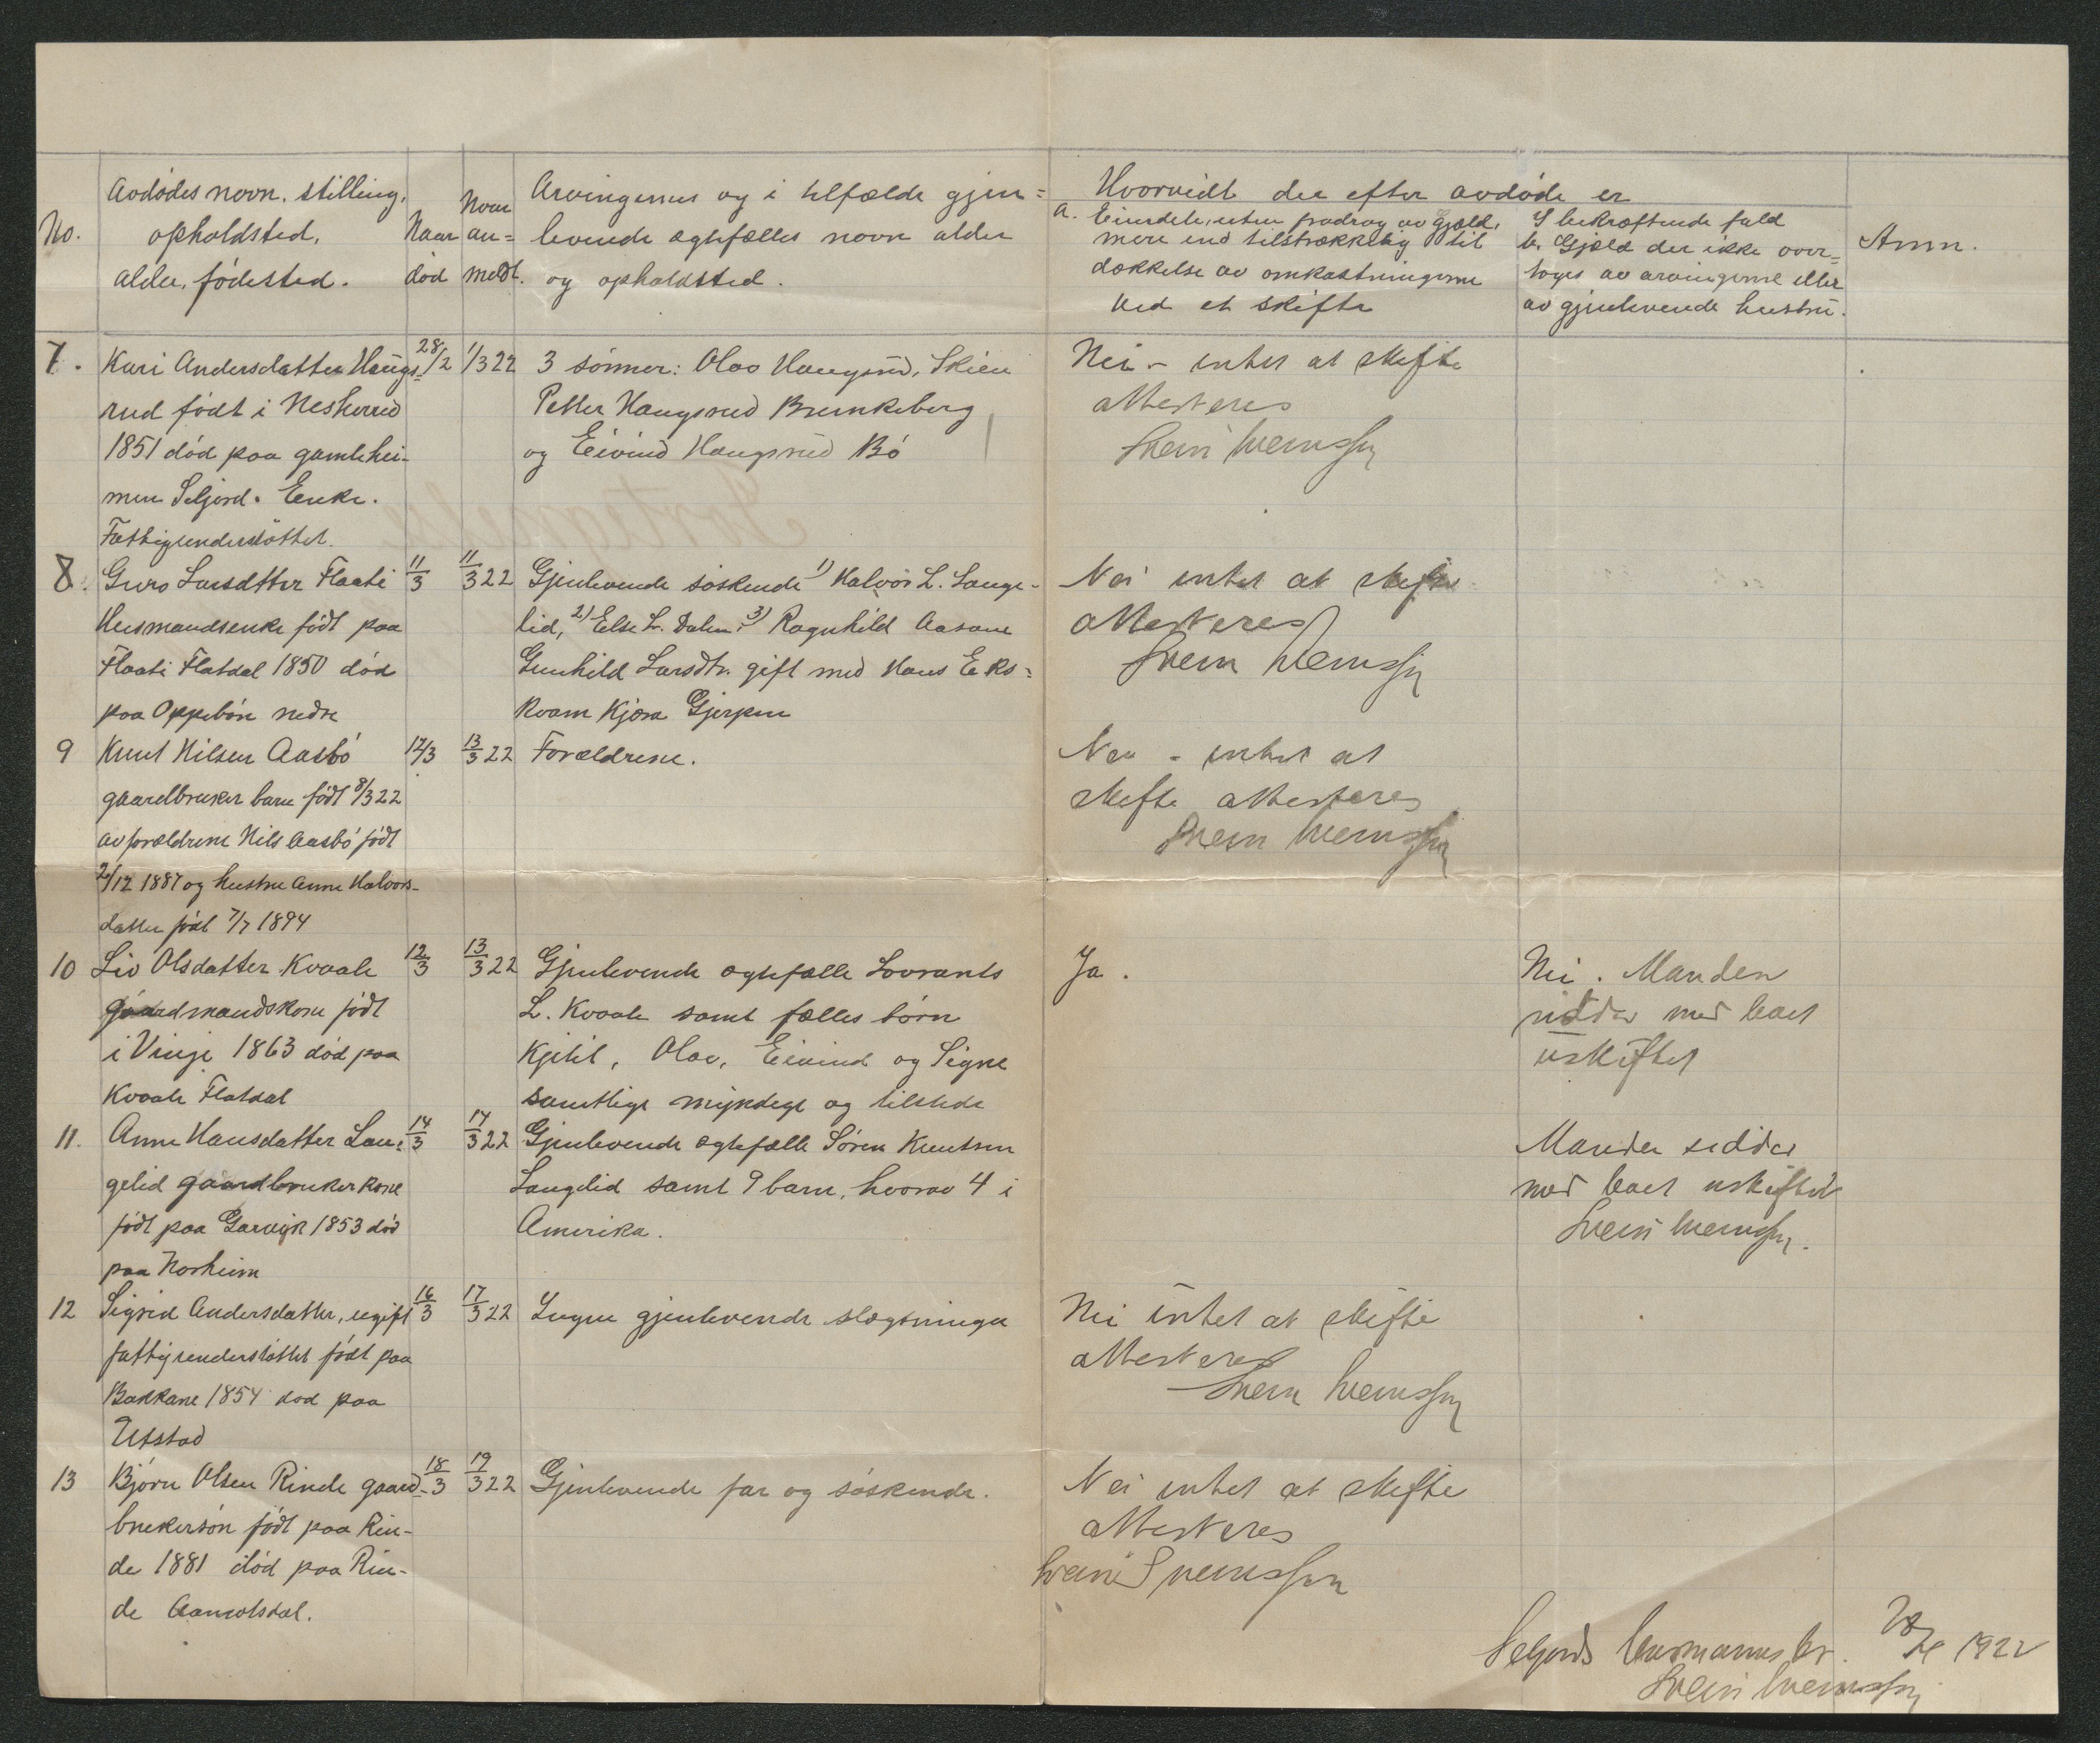 No.
Avdødes navn, stilling,
opholdsted,
alder, fødested.
Naar
død
Naar
an=
meldt.
Arvingernes og i tilfælde gjen=
levende egtefælles navn alder
og opholdsted.
Hvorvidt der efter avdøde er
a. Eiendele, uten fradrag av gjæld,
mere end tilstrækkelig til
dækkelse av omkostningerne
ved et skifte
I bekræftende fald
b. Gjæld der ikke over=
toges av arvingerne eller
av gjenlevende hustru.
Anm.
7. Kari Andersdatter Haugs= 28/2 1/3 22 3 sønner: Olav Haugsrud, Skien Nei - intet at skifte
rud født i Nesherred Petter Haugsrud Brunkeberg attesteres
1851 død paa gamlehei- og Eivind Haugsrud Bø Svein Sveinsson
men Seljord. Enke.
Fattigunderstøttet.
8. Guro Larsdtter Flaati 11/3 11/3 22 Gjenlevende søskende 1) Halvor L. Lange- Nei intet at skifte
Husmandsenke født paa lid, 2) Else L. Dalen, 3) Ragnhild Aasane attesteres
Flaati Flatdal 1850 død Gunhild Larsdtr. gift med Hans Eks= Svein Sveinsson
paa Oppebøn nedre kvam Kjøsa Gjerpen
9 Knut Nilsen Aasbø 12/3 13/3 22 Forældrene. Nei - intet at
gaardbruker barn født 8/3 22 skifte attesteres
av forældrene Nils Aasbø født Svein Sveinsson
2/12 1887 og hustru Anne Halvors-
datter født 7/7 1894
10 Liv Olsdatter Kvaale 12/3 13/3 22 Gjenlevende egtefælle Lavrants Ja. Nei. Manden
gaardmandskone født L. Kvaale samt fælles børn sidder med boet
i Vinje 1863 død paa Kjetil, Olav, Eivind og Signe uskiftet
Kvaale Flatdal samtlige myndige og tilstede
11. Anne Hansdatter Lan= 14/3 14/3 22 Gjenlevende egtefælle Søren Knutsen Manden sidder
gelid gaardbruker kone Langelid samt 9 barn, hvorav 4 i med boet uskiftet
født paa Garvik 1853 død Amerika. Svein Sveinsson.
paa Norheim
12 Sigrid Andersdatter, ugift 16/3 17/3 22 Ingen gjenlevende slægtninger Nei intet at skifte
fattigunderstøttet født paa attesteres
Bakkane 1854 død paa Svein Sveinsson
Utstad
13 Bjørn Olsen Rinde gaard- 18/3 19/3 22 Gjenlevende far og søskende. Nei intet at skifte
brukersøn født paa Rin- attesteres
de 1881 død paa Rin- Svein Sveinsson
de Aamotsdal.
Seljords lensmannsktr. 1922
Svein Sveinsson